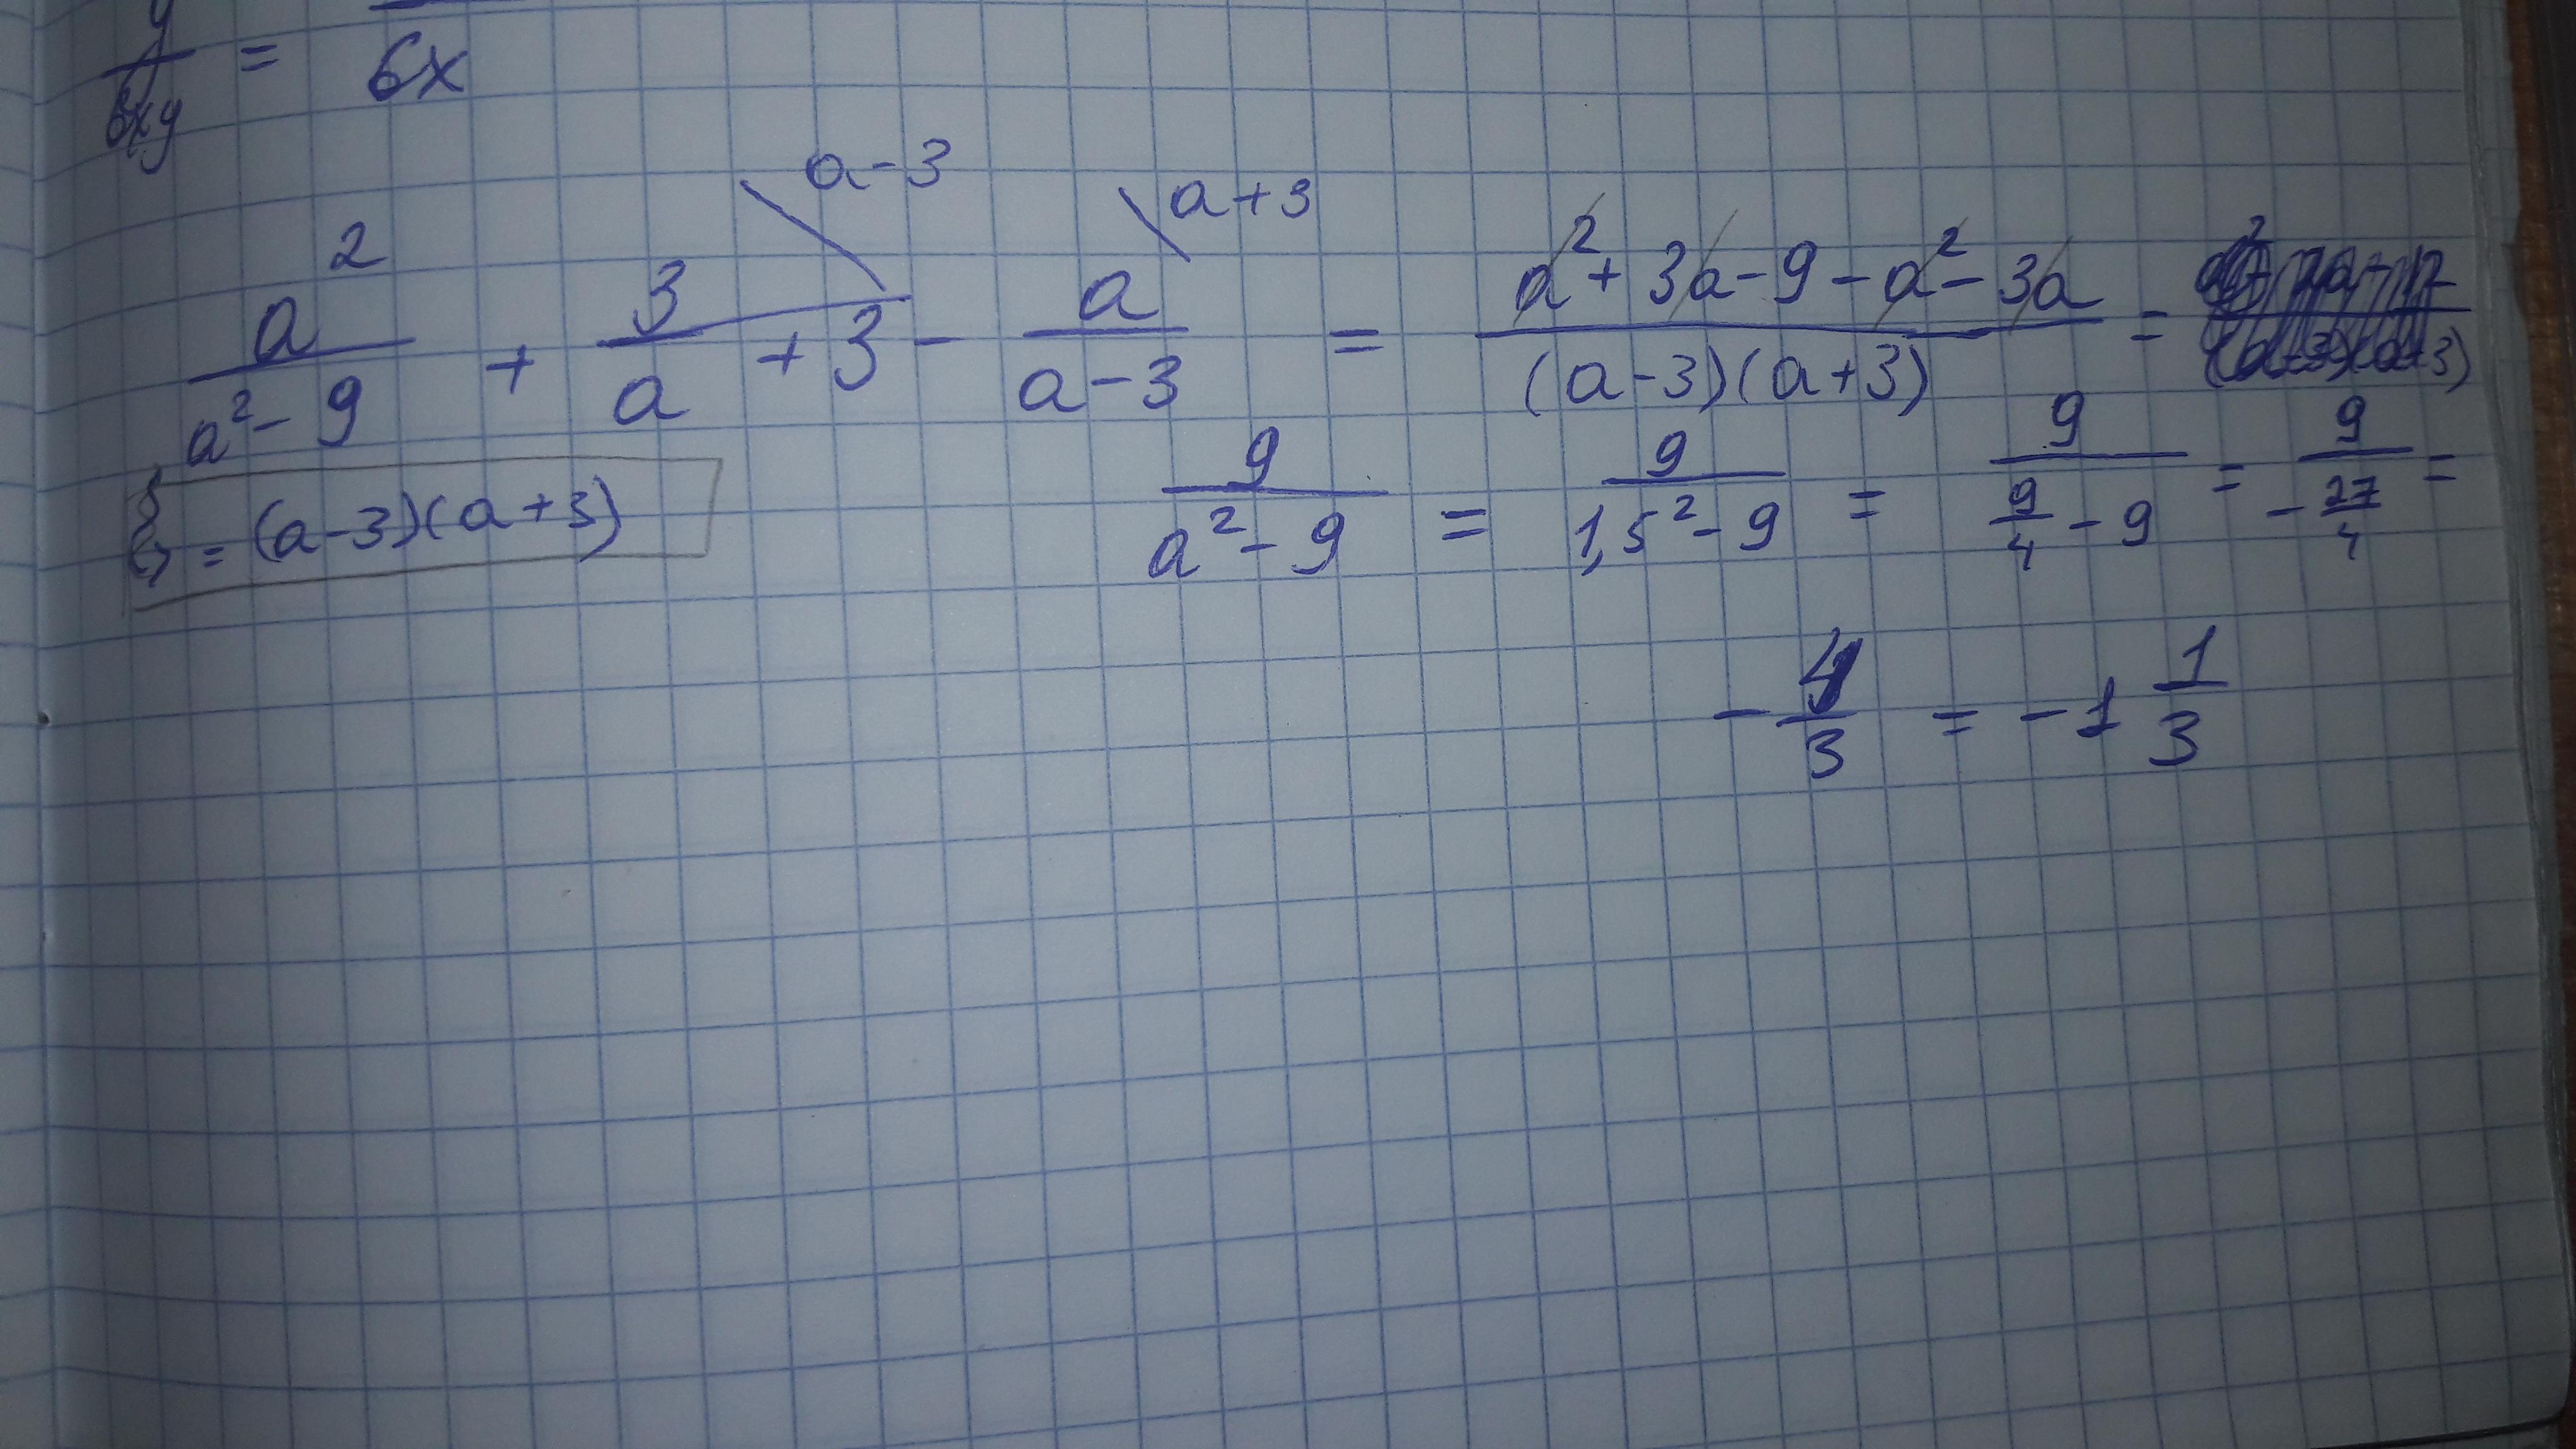 y/6xy = /6x
a²/(a²-9) + 3/(a+3) \a-3 - a/(a-3) \a+3 = (a²+3a-9-a²-3a)/((a-3)(a+3)) =
= (a-3)(a+3)
9/(a²-9) = 9/(1,5²-9) = 9/(9/4-9) = 9/(-27/4) =
-4/3 = -1 1/3